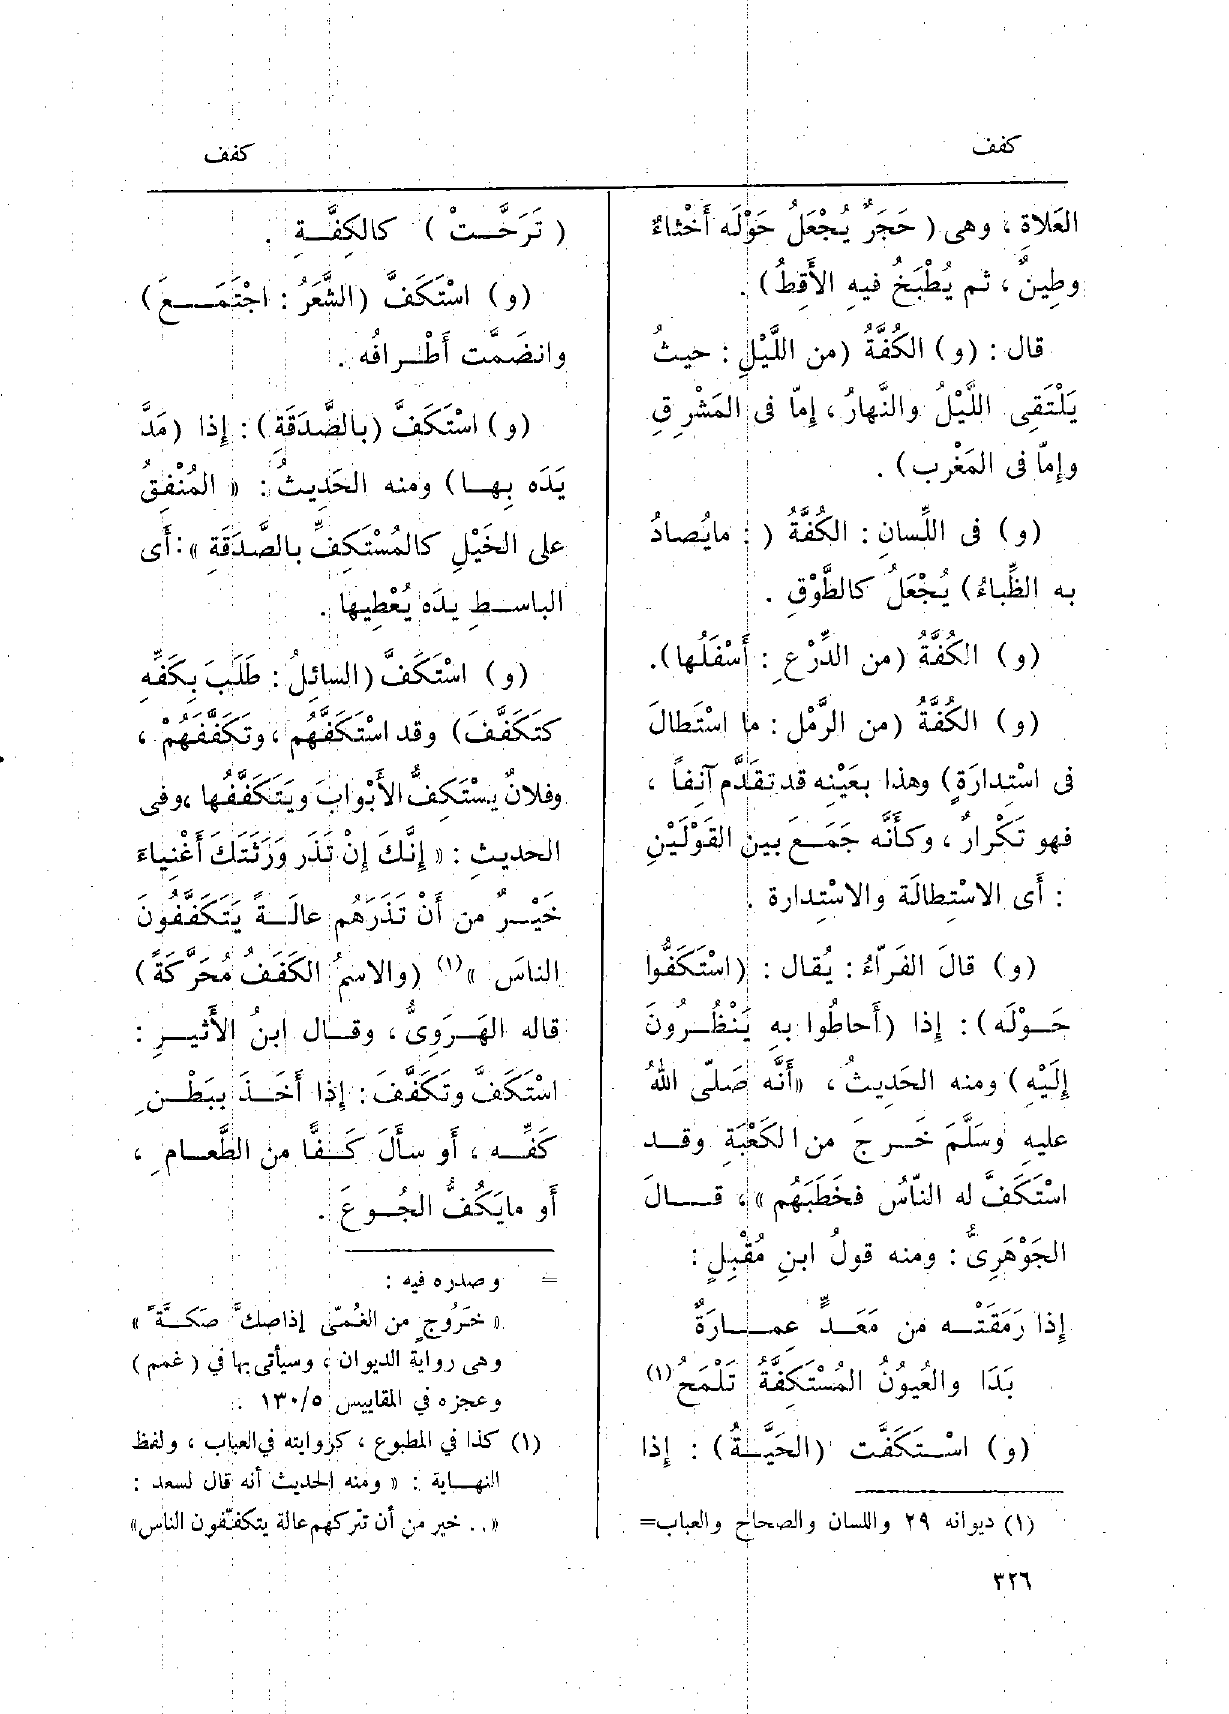 كفف
كفف
العَلاةِ ، وهى ( حَجَرٌ يُجْعَلُ حَوْلَه أَخْثاءُ
وطِينٌ ، ثم يُطْبَخُ فيه الأَقِطُ) .
قال : (و) الكُفَّةُ (من اللَّيْلِ : حيثُ
يَلْتَقِى اللَّيْلُ والنَّهارُ ، إِمّا فى المَشْرِقِ
وإِمّا فى المَغْرِب) .
(و) فى اللِّسانِ : الكُفَّةُ ( : مايُصادُ
به الظِّباءُ) يُجْعَلُ كالطَّوْقِ .
(و) الكُفَّةُ (من الدِّرْعِ : أَسْفَلُها).
(و) الكُفَّةُ (من الرَّمْل : ما اسْتَطالَ
فى اسْتِدارَةٍ) وهذا بعَيْنِه قد تقَدَّم آنِفاً ،
فهو تَكْرارٌ ، وكأَنَّه جَمَعَ بين القَوْلَيْنِ
: أَى الاسْتِطالَة والاسْتِدارة .
(و) قالَ الفَرّاءُ : يُقال : (اسْتَكَفُّوا
حَوْلَه) : إِذا (أَحاطُوا بهِ يَنْظُرُونَ
إِلَيْهِ) ومنه الحَدِيثُ ، «أَنَّه صَلّى اللهُ
عليهِ وسَلَّمَ خَرجَ من الكَعْبَةِ وقد
اسْتَكَفَّ له النّاسُ فخَطَبَهُم» ، قالَ
الجَوْهَرِىُّ : ومنه قولُ ابنِ مُقْبِلٍ :
إِذا رَمَقَتْه من مَعَدٍّ عمارَةٌ
بَدَا والعُيوُنُ المُسْتَكِفَّةُ تَلْمَحُ (١)
(و) اسْتَكَفَّت (الحَيَّةُ) : إِذا
(١) ديوانه ٢٩ واللسان والصحاح والعباب=
٣٢٦
( تَرَحَّتْ ) كالكِفَّةِ .
(و) اسْتَكَفَّ (الشَّعَرُ : اجْتَمَعَ)
وانضَمَّت أَطْرافُه .
(و) اسْتَكَفَّ (بالصَّدَقَةِ) : إِذا (مَدَّ
يَدَه بِها) ومنه الحَدِيثُ : « المُنْفِقُ
على الخَيْلِ كالمُسْتَكِفِّ بالصَّدَقَةِ » : أَى
الباسطِ يدَه يُعْطِيها .
(و) اسْتَكَفَّ (السائلُ : طَلَبَ بكَفِّهِ
كتَكَفَّفَ) وقد اسْتَكَفَّهُم ، وتَكَفَّفَهُمْ ،
وفلانٌ يسْتَكِفُّ الأَبْوابَ ويَتَكَفَّفُها ،وفى
الحديثِ : « إِنَّكَ إِنْ تَذَر وَرَثَتَكَ أَغْنِياءَ
خَيْرٌ من أَنْ تَذَرَهُم عالَةً يَتَكَفَّفُونَ
الناسَ »(١) (والاسمُ الكَفَفُ مُحَرَّكَةً)
قاله الهَرَوِىُّ ، وقال ابنُ الأَثيرِ :
اسْتَكَفَّ وتَكَفَّفَ : إِذا أَخَذَ ببَطْنِ
كَفِّه ، أَو سأَلَ كَفًّا من الطَّعامِ ،
أَو مايَكُفُّ الجُوعَ .
= وصدره فيه :
« خَرُوجٍ من الغُمّى إذاصك صَكَّةً »
وهى رواية الديوان ، وسيأتى بها في ( غمم )
وعجزه في المقاييس ١٣٠/٥ .
(١) كذا في المطبوع ، كروايته في العباب ، ولفظ
النهاية : « ومنه الحديث أنه قال لسعد :
«.. خير من أن تتركهم عالة يتكففون الناس»